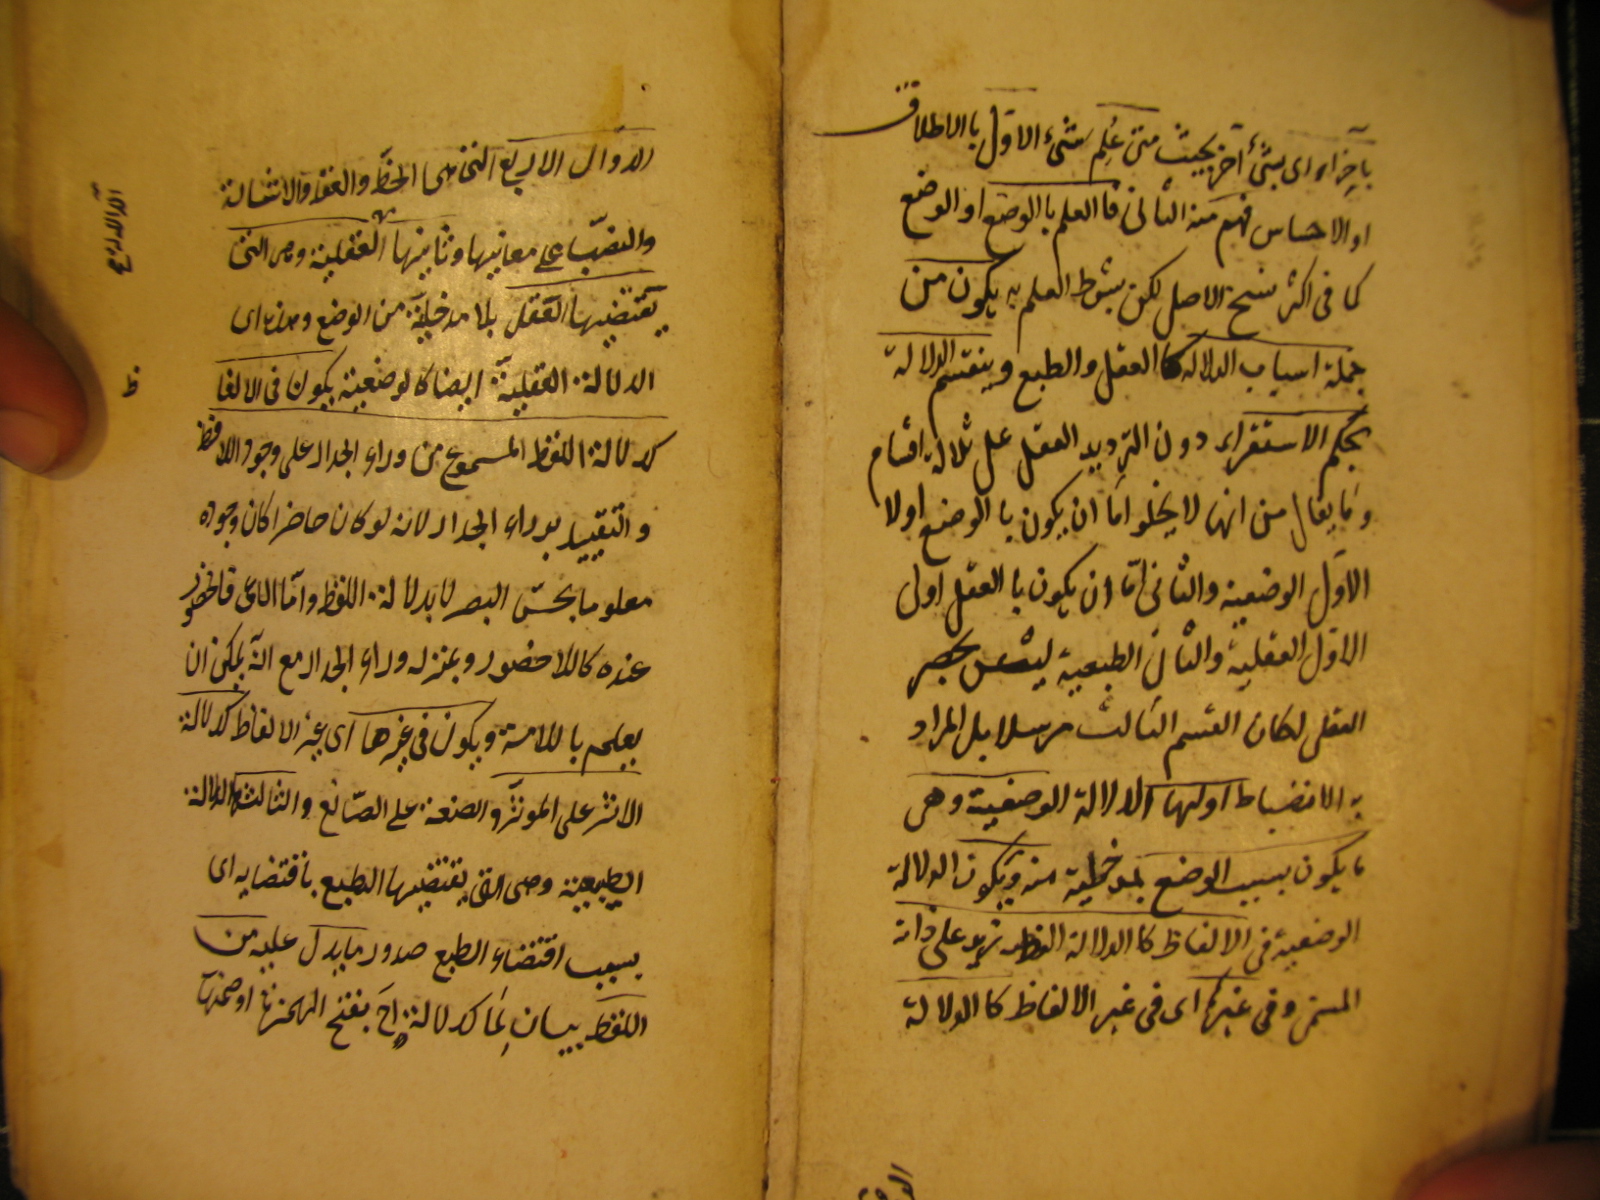 بآخر او اى بشئ آخر بحيث متى عُلِم شئ الاوّل بالاطلاق
او الاحساس فهم منه الثانى فالعلم بالوضع او الوضع
كما فى اكثر نسخ الاصل لكن بشرط العلم به يكون من
جملة اسباب الدلالة كالعقل والطبع وينقسم الدلالة
بحكم الاستقراء دون الترديد العقل على ثلاثة اقسام
وما يقال من انها لا يخلو امّا ان يكون بالوضع اولا
الاوّل الوضعية والثانى امّا ان يكون بالعقل اولى
الاوّل العقلية والثانى الطبيعية ليس بحصر
العقلى لكان القسم الثالث مرسلا بل المراد
به الانضباط اوليها الدلالة الوضعية وهى
ما يكون بسبب الوضع بمدخلية منه ويكون الدلالة
الوضعية فى الالفاظ كالدلالة لفظ زيد على ذاته
المسمى وفى غيرها اى فى غير الالفاظ كالدلالة
الدوال الاربع التى هى الخطّ والعقد والاشالة
والنصب على معانيها وثانيها العقلية وهى التى
يقتضيها العقل بلا مدخلية من الوضع وهذه اى
الدلالة العقلية ايضا كالوضعية يكون فى الالفا
ظ
كدلالة اللفظ المسموع من وراء الجدار على وجود اللافظ
والتقييد بوراء الجدار لانه لو كان حاضرا كان وجوده
معلوما بحسّ البصر لا بدلالة اللفظ وامّا الاعمى فالحضور
عنده كاللاحضور وبمنزلة وراء الجدار مع انّه يمكن ان
يعلم باللامسة ويكون فى غيرها اى غير الالفاظ كدلالة
الاثر على المؤثّر والصنعة على الصّانع والثالثة الدلالة
الطبيعية وهى التى يقتضيها الطبع باقتضايه اى
بسبب اقتضاء الطبع صدور ما يدل عليه من
اللفظ بيان لِما كدلالة اح بفتح الهمزة او ضمّها